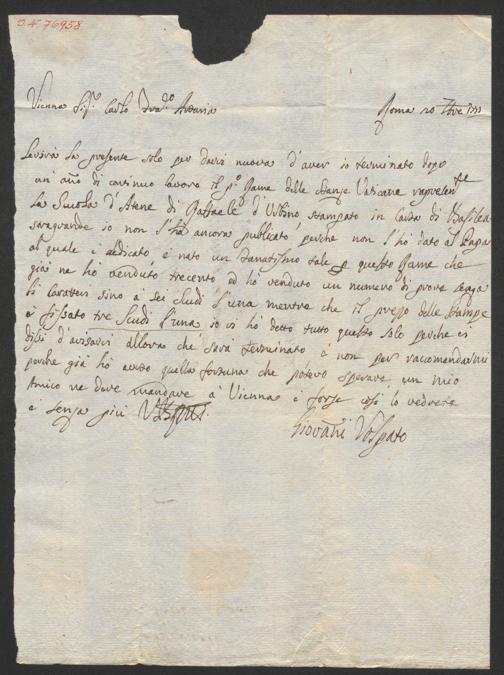 I.N. 76958
Vienna Sig.r Carlo Artaria
Roma 20
Servirà la presente solo per darvi nuova d'aver io terminato dopo
un año di continuo lavoro il p.o Rame delle Stanze Vaticane
La Scuola d'Atene di Raffaele d'Urbino stampato in Carta di
io non l'ho ancora publicato, perche non l'ho dato al Papa
al quale è dedicato, è nato un fanatismo tale p questo Rame che
già ne ho venduto trecento ed ho venduto un numero di prove
li caratteri sino a sei Scudi l'una mentre che il prezzo delle Stampe
è fissato tre Scudi l'una, io vi ho detto tutto questo solo perche vi
dissi d'avisarvi allora che sarà terminato e non per raccomandarmi
perche già ho avuto quella fortuna che potevo sperare, un mio
Amico ne deve mandare à Vienna e forse così lo vedrete
e senza più
Giovañi Volpato